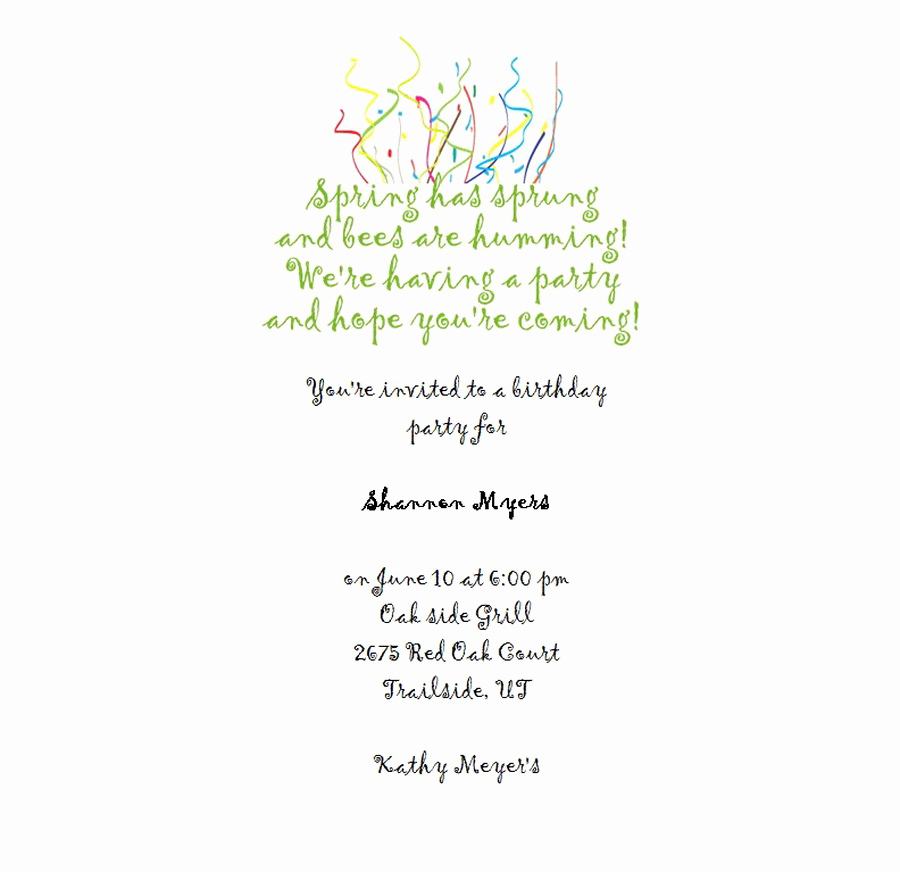 Spring has sprung
and bees are humming!
We're having a party
and hope you're coming!
You're invited to a birthday
party for
Shannon Myers
on June 10 at 6:00 pm
Oak side Grill
2675 Red Oak Court
Trailside, UT
Kathy Meyer's